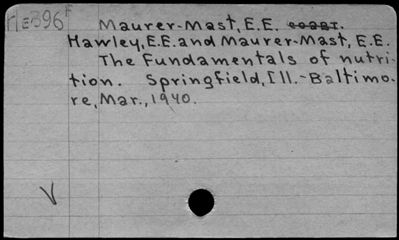 HE396F Maurer-Mast, E.E. coaut.
Hawley, E.E. and Maurer-Mast, E.E.
The Fundamentals of nutri-
tion. Springfield, Ill.-Baltimo-
re, Mar., 1940.